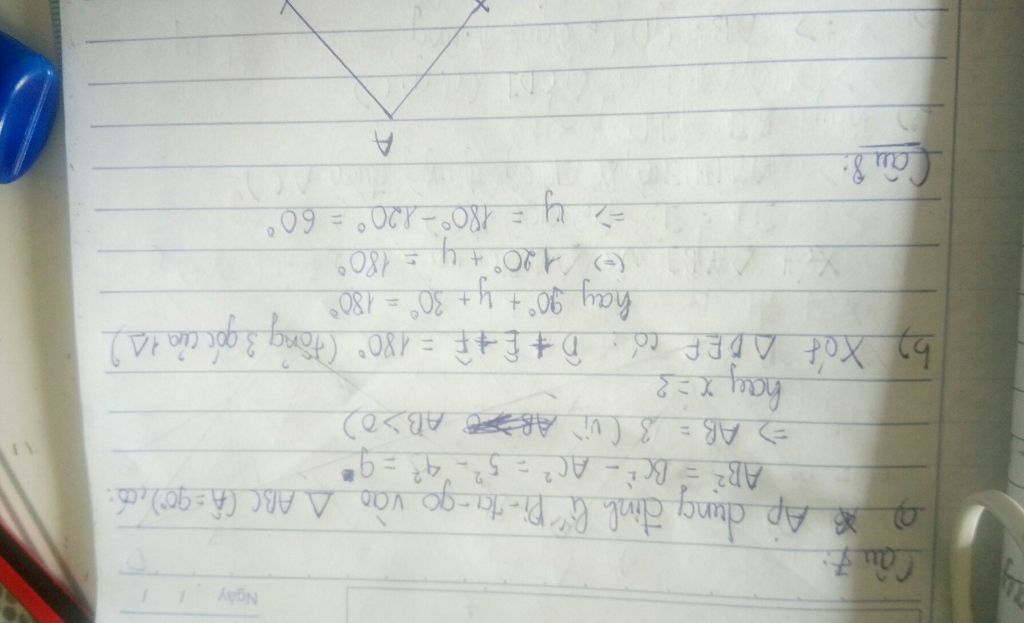 Ngày / /
Câu 7:
a) Áp dụng định lí Pi-ta-go vào Δ ABC (Â = 90°) có:
AB² = BC² - AC² = 5² - 4² = 9
=> AB = 3 (vì AB > 0)
hay x = 3
b) Xét Δ DEF có: D̂ + Ê + F̂ = 180° (tổng 3 góc của 1 Δ)
hay 90° + y + 30° = 180°
(=) 120° + y = 180°
=> y = 180° - 120° = 60°
Câu 8:
A